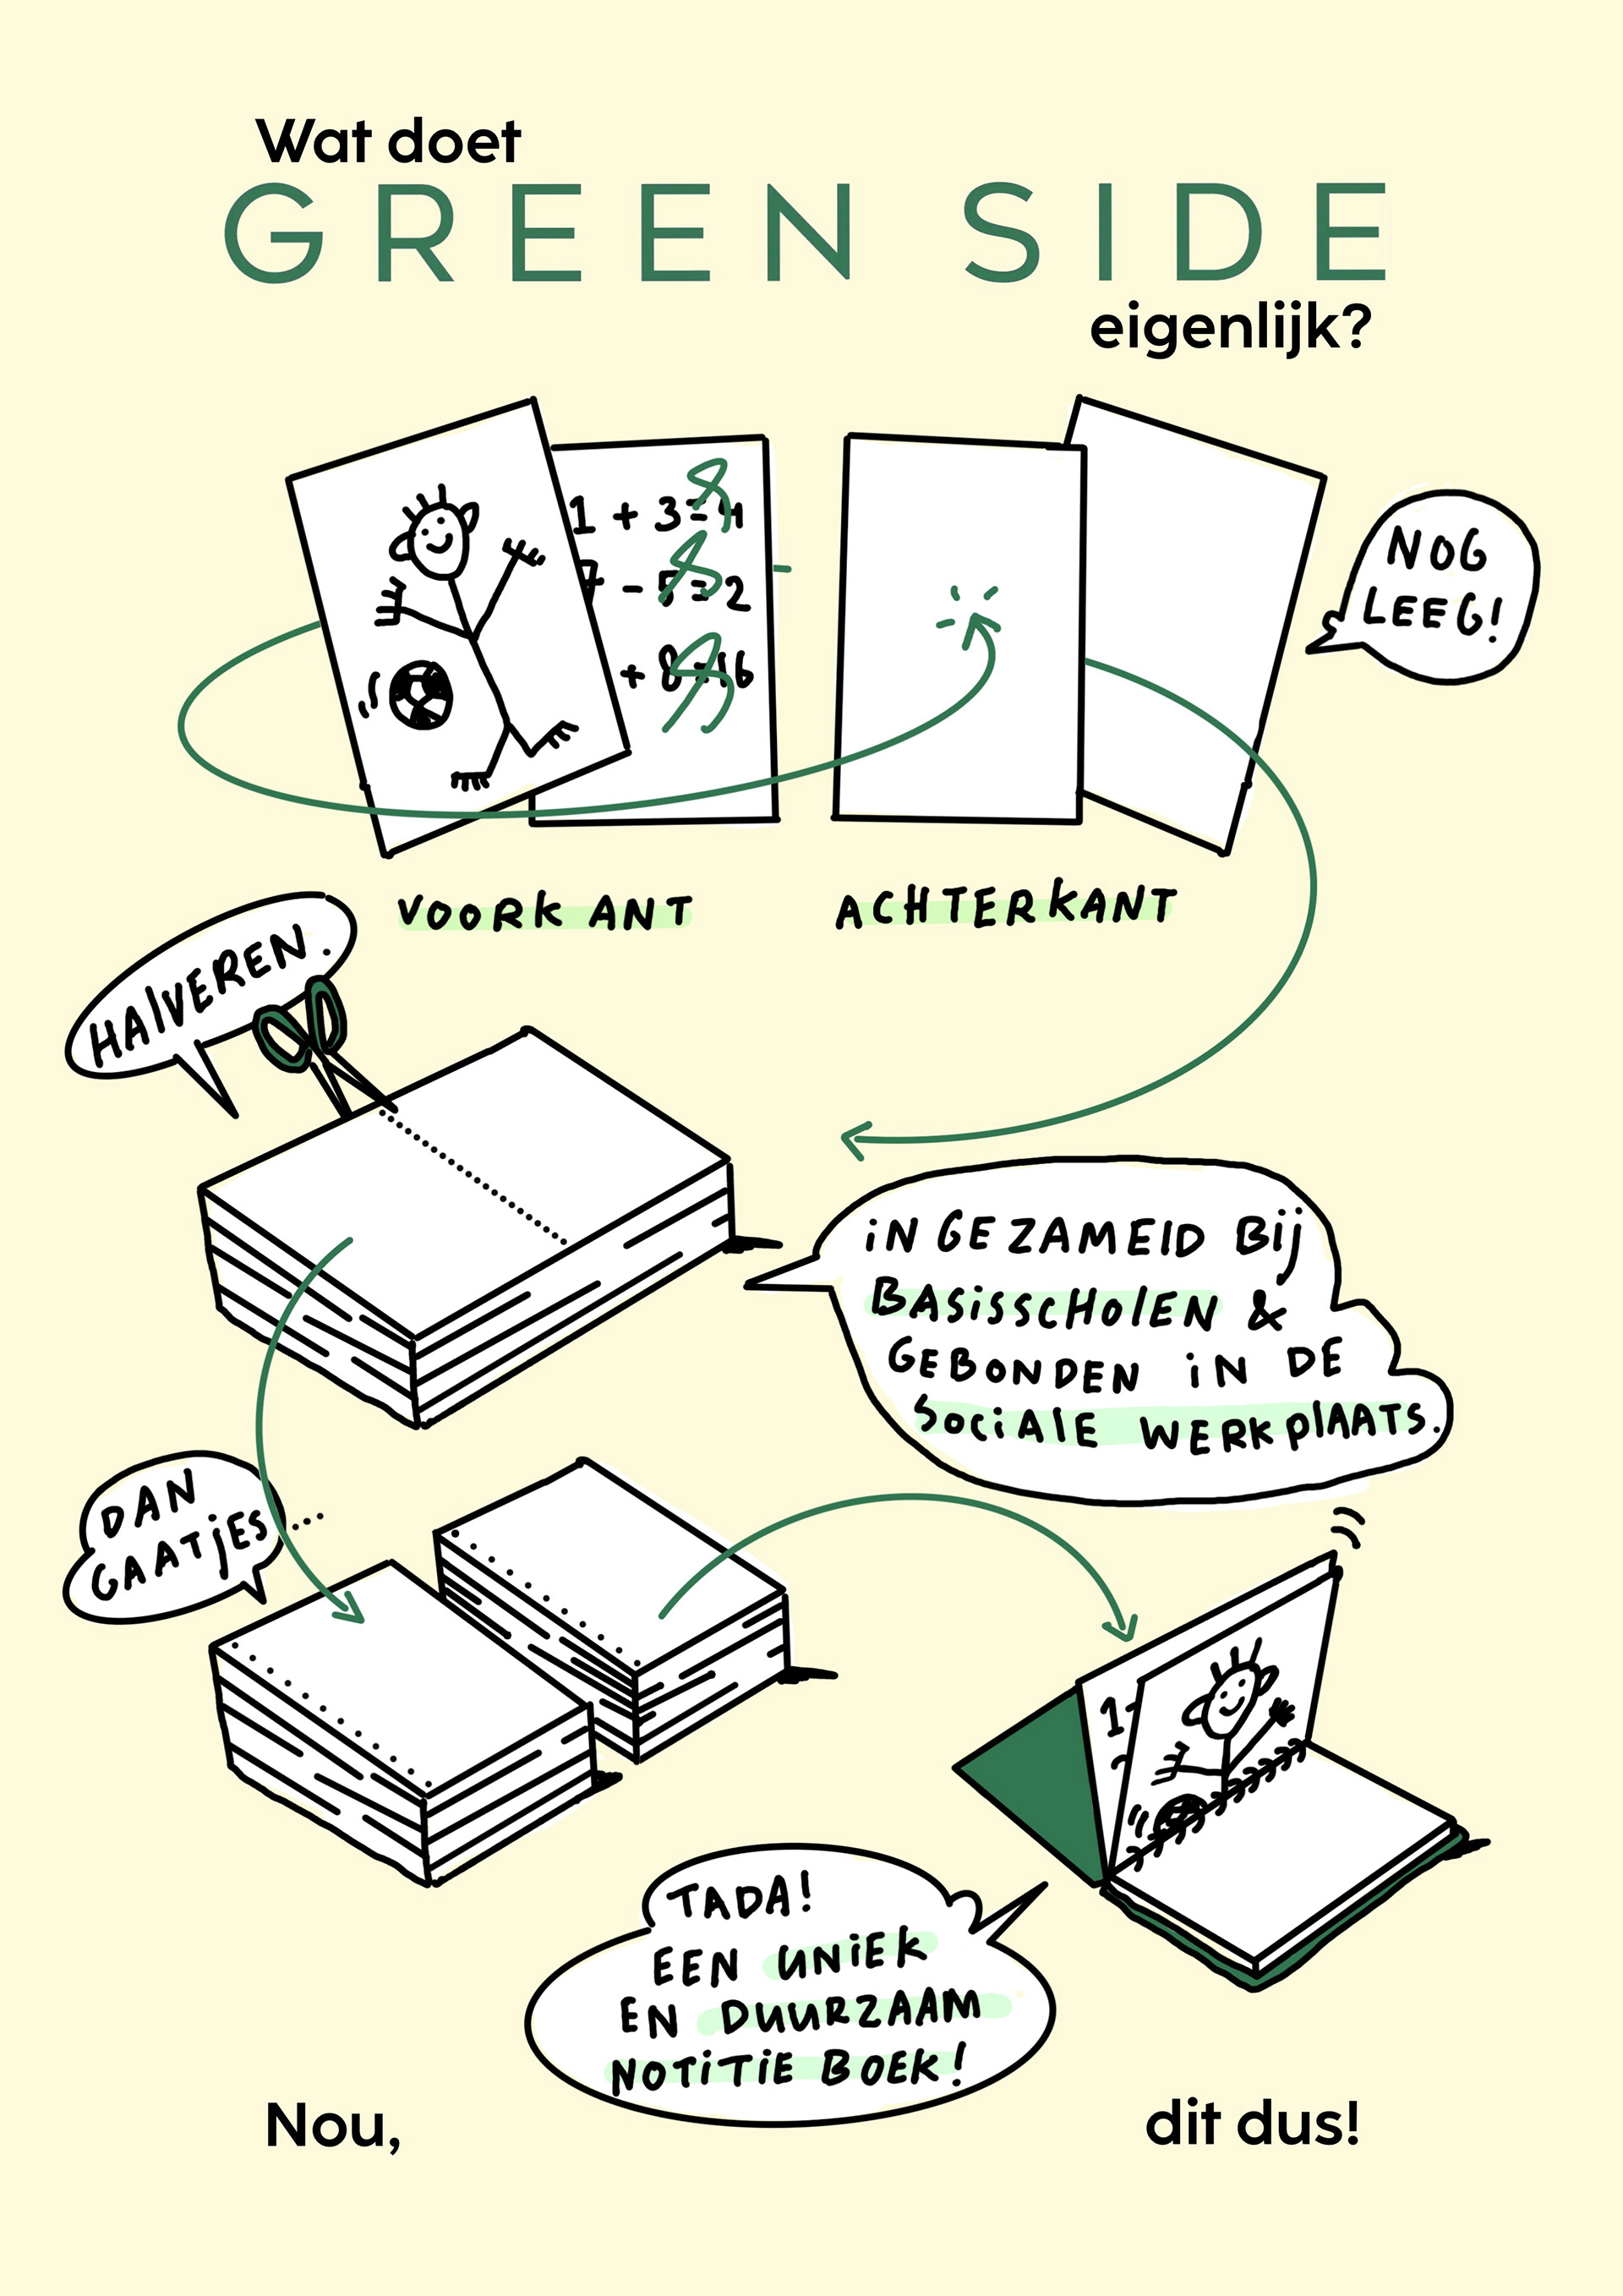 Wat doet
GREEN SIDE
eigenlijk?
1 + 3 = 4
7 - 5 = 2
+ 8 = 16
NOG
LEEG!
VOORKANT
ACHTERKANT
HALVEREN.
INGEZAMELD BIJ
BASISSCHOLEN &
GEBONDEN IN DE
SOCIALE WERKPLAATS.
DAN
GAATJES...
1
TADA!
EEN UNIEK
EN DUURZAAM
NOTITIE BOEK!
Nou,
dit dus!